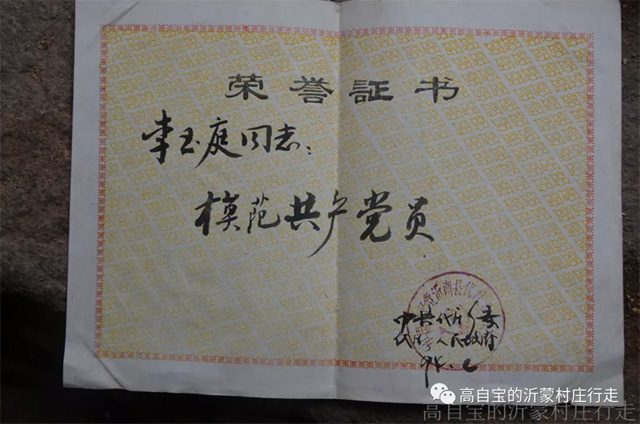 荣誉証书
李玉庭同志：
模范共产党员
中共代庄乡委
代庄乡人民政府
高自宝的沂蒙村庄行走
高自宝的沂蒙村庄行走